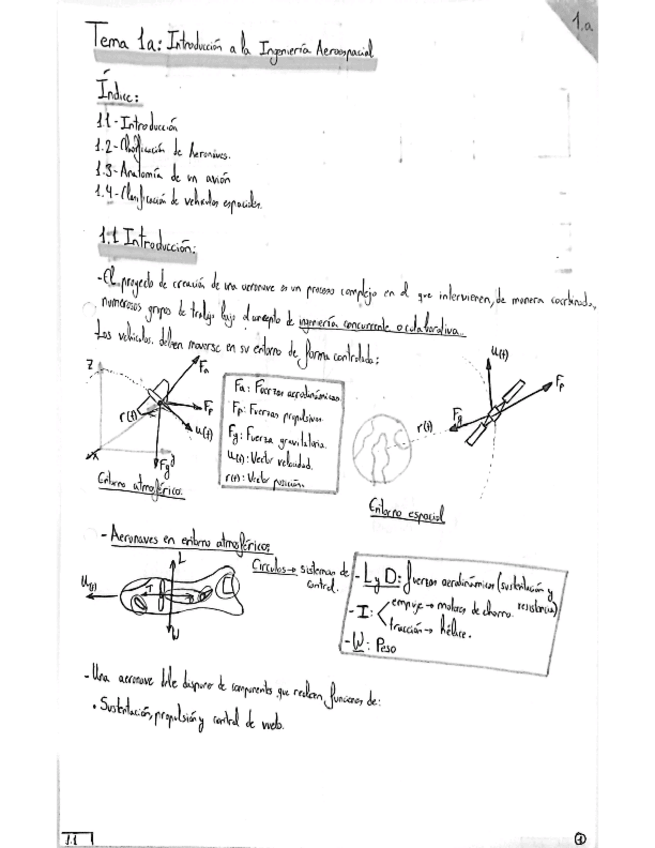 1.a
Tema 1a: Introducción a la Ingeniería Aeroespacial
Índice:
1.1-Introducción
1.2-Clasificación de Aeronaves.
1.3-Anatomía de un avión
1.4-Clasificación de vehículos espaciales.
1.1 Introducción:
-El proyecto de creación de una aeronave es un proceso complejo en el que intervienen, de manera coordinada,
numerosos grupos de trabajo bajo el concepto de ingeniería concurrente o colaborativa.
Los vehículos deben moverse en su entorno de forma controlada:
Z
Fa
Fp
r(t)
u(t)
Fg
y
x
Entorno atmosférico.
Fa: Fuerzas aerodinámicas.
Fp: Fuerzas propulsivas
Fg: Fuerza gravitatoria.
u(t): Vector velocidad.
r(t): Vector posición.
u(t)
Fp
Fg
r(t)
Entorno espacial
- Aeronaves en entorno atmosférico:
L
u(t)
T
W
Círculos→ sistemas de
control.
- L y D: fuerzas aerodinámicas (sustentación y
resistencia)
empuje → motores de chorro.
- T:
tracción → hélice.
- W: Peso
-Una aeronave debe disponer de componentes que realicen funciones de:
• Sustentación, propulsión y control de vuelo.
1.1
1